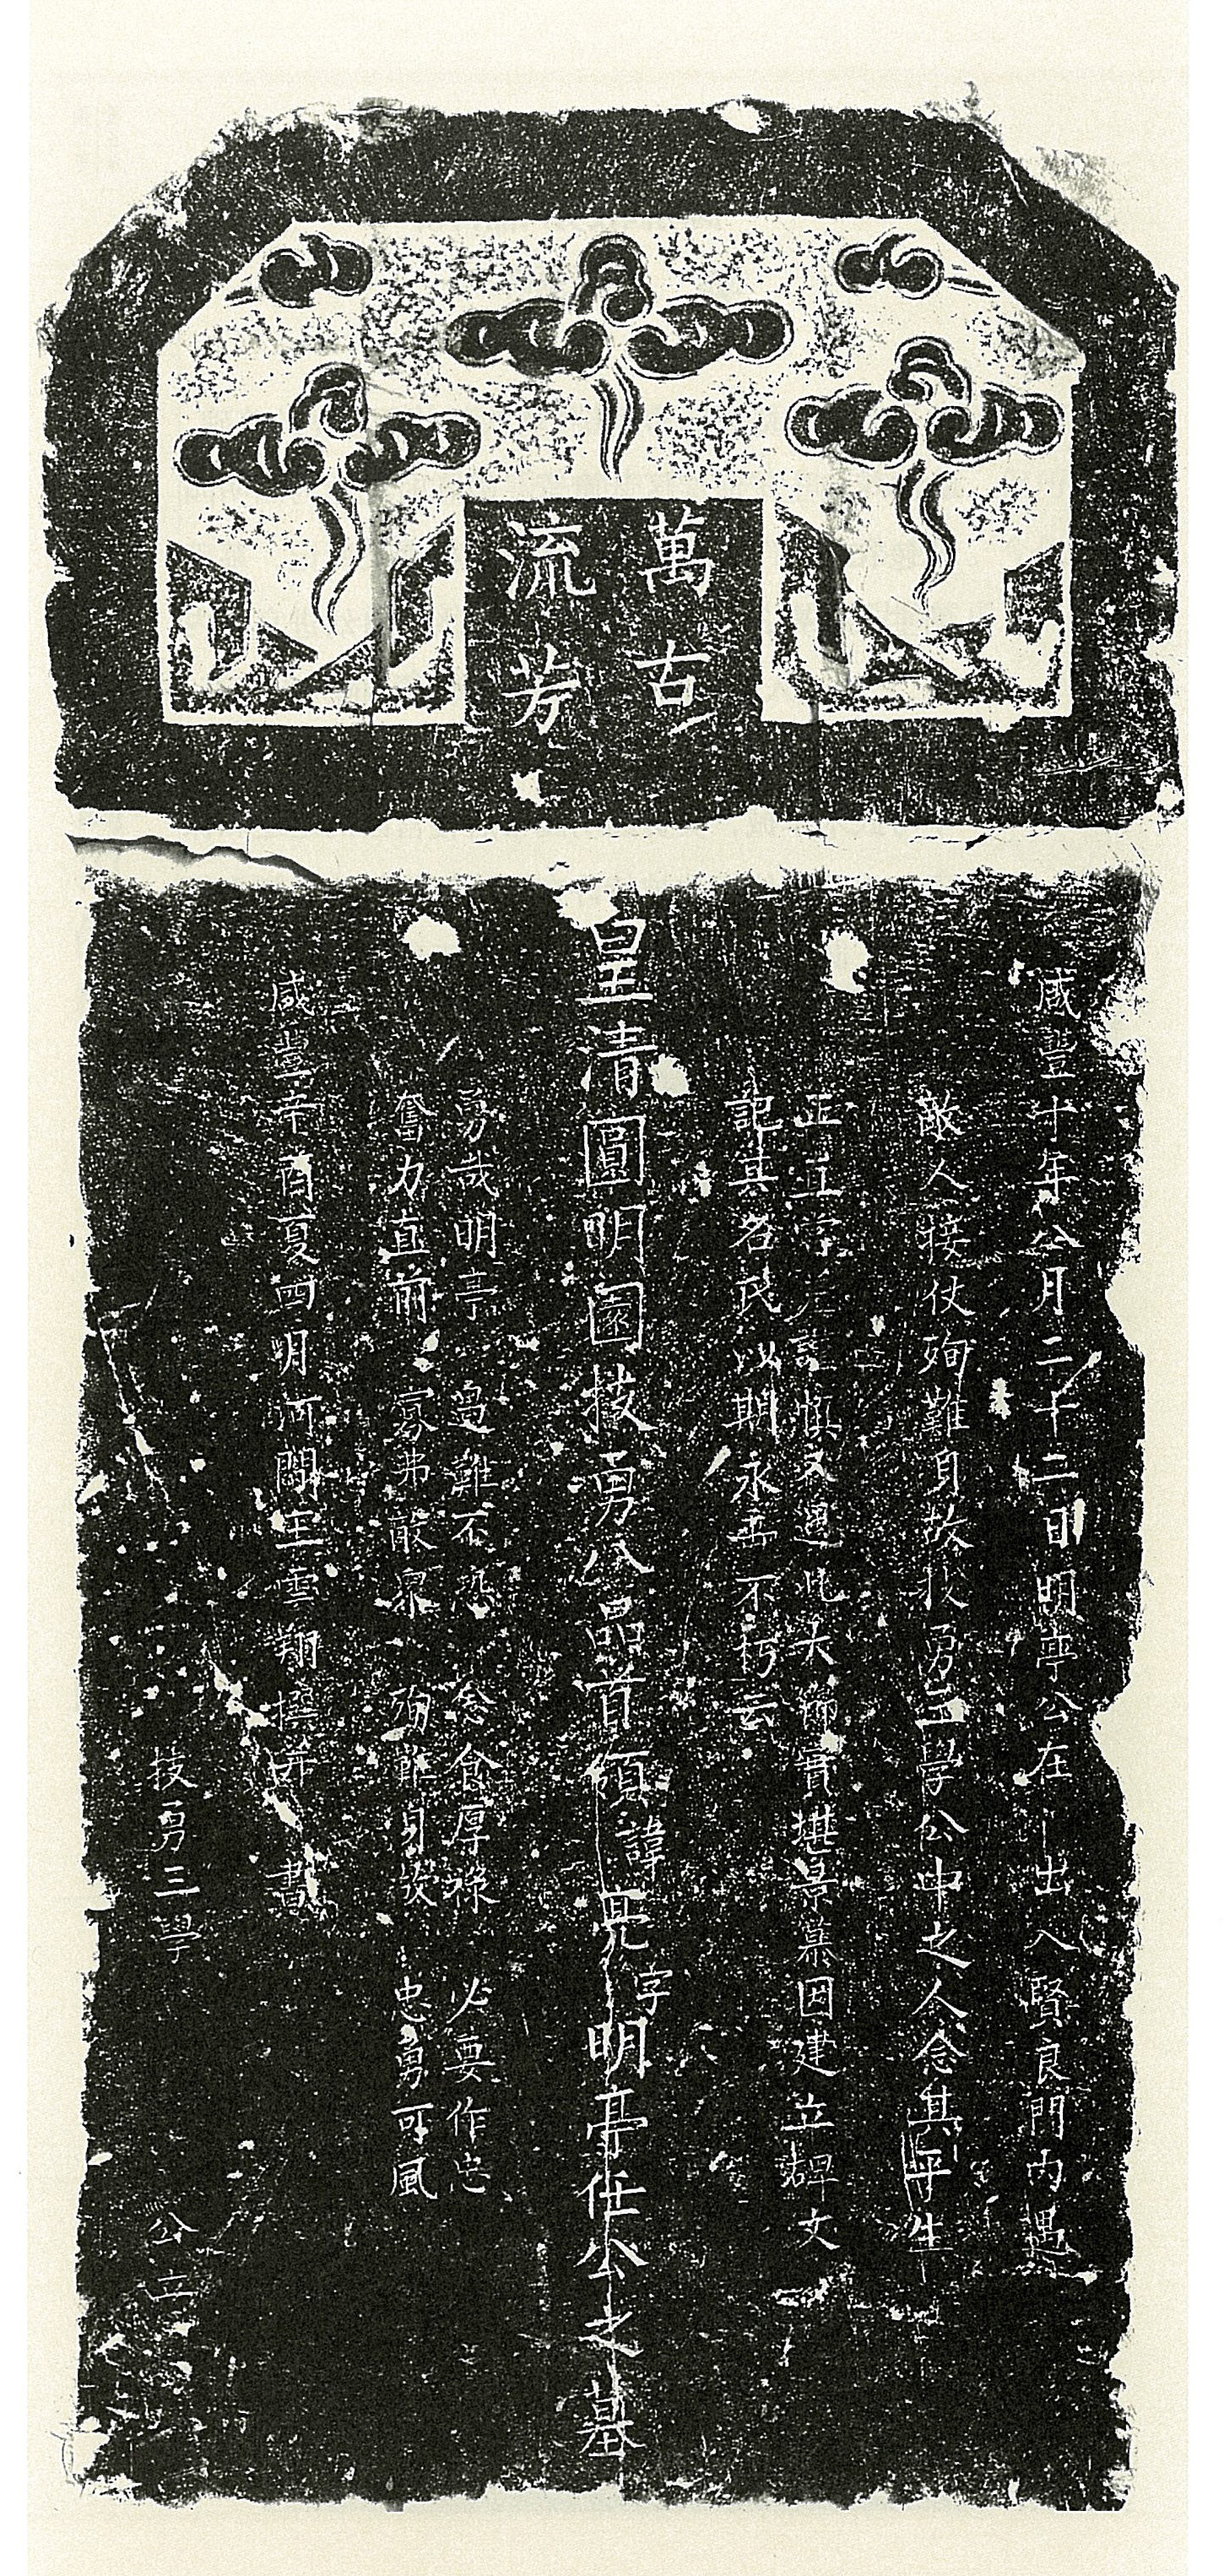 萬古
流芳
咸豐十年八月二十二日明亭公在出入賢良門內遇
敵人接仗殉難身故技勇三學公中之人念其平生
正直 謹慎又遇此大節實堪景慕因建立碑文
記其名氏以期永垂不朽云
皇清圓明園技勇八品首領諱亮字明亭任公之墓
勇哉明亭 遇難不恐 念食厚祿 必要作忠
奮力直前 寡弗敵衆 殉節身故 忠勇可風
咸豐辛酉夏四月河間王雲翔撰并書
技勇三學 公立